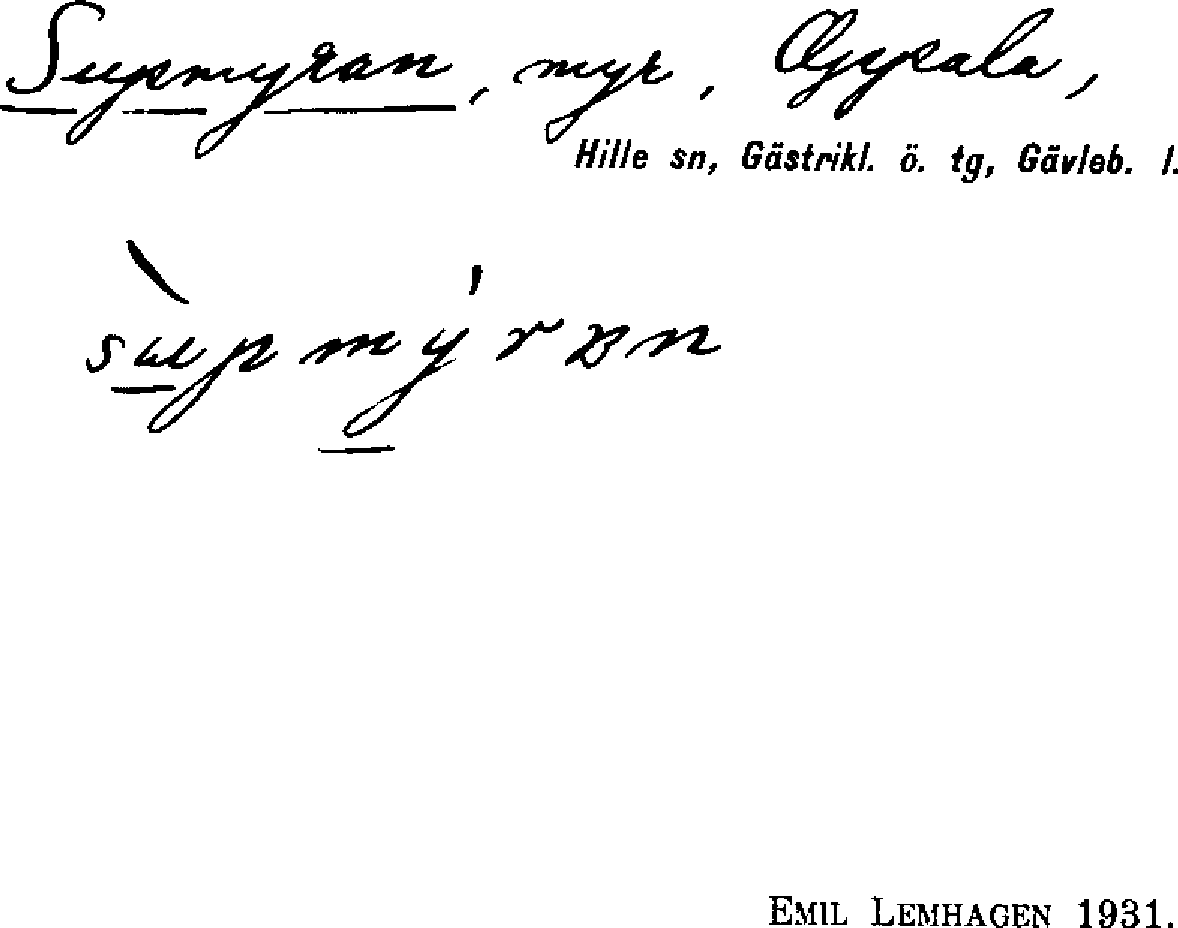 Supmyran, myr, Oppala,
Hille sn, Gästrikl. ö. tg, Gävleb. l.
sùpmýran
EMIL LEMHAGEN 1931.